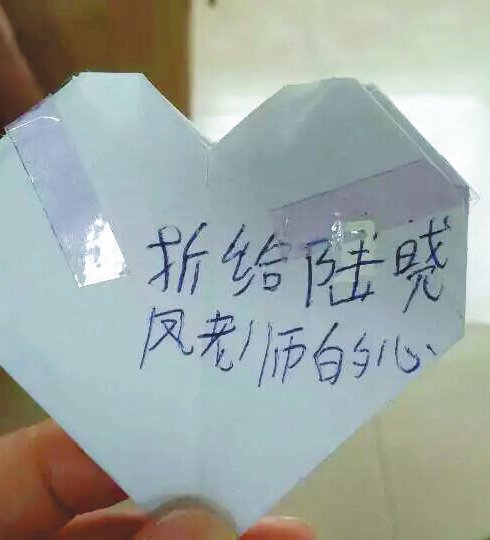 折给陆晓
凤老师的心